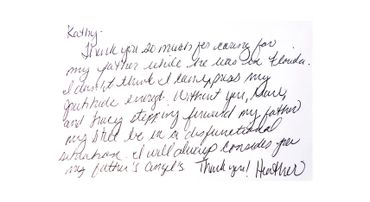 Kathy-
Thank you so much for caring for
my father while he was in Florida.
I don't think I can express my
gratitude enough. Without you,
and Tracy stepping forward my father
my still be in a disfunctional
situation. I will always consider you
my father's angel's Thank you! Heather